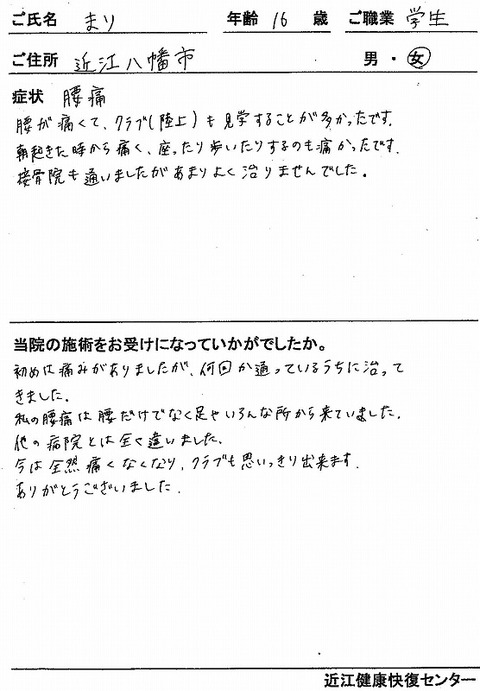 ご氏名 まり 年齢 16 歳 ご職業 学生
ご住所 近江八幡市 男・女
症状 腰痛
腰が痛くて、クラブ(陸上)も見学することが多かったです。
朝起きた時から痛く、座ったり歩いたりするのも痛かったです。
接骨院も通いましたがあまりよく治りませんでした。
当院の施術をお受けになっていかがでしたか。
初めは痛みがありましたが、何回か通っているうちに治って
きました。
私の腰痛は腰だけでなく足やいろんな所から来ていました。
他の病院とは全く違いました。
今は全然痛くなくなり、クラブも思いっきり出来ます。
ありがとうございました。
近江健康快復センター